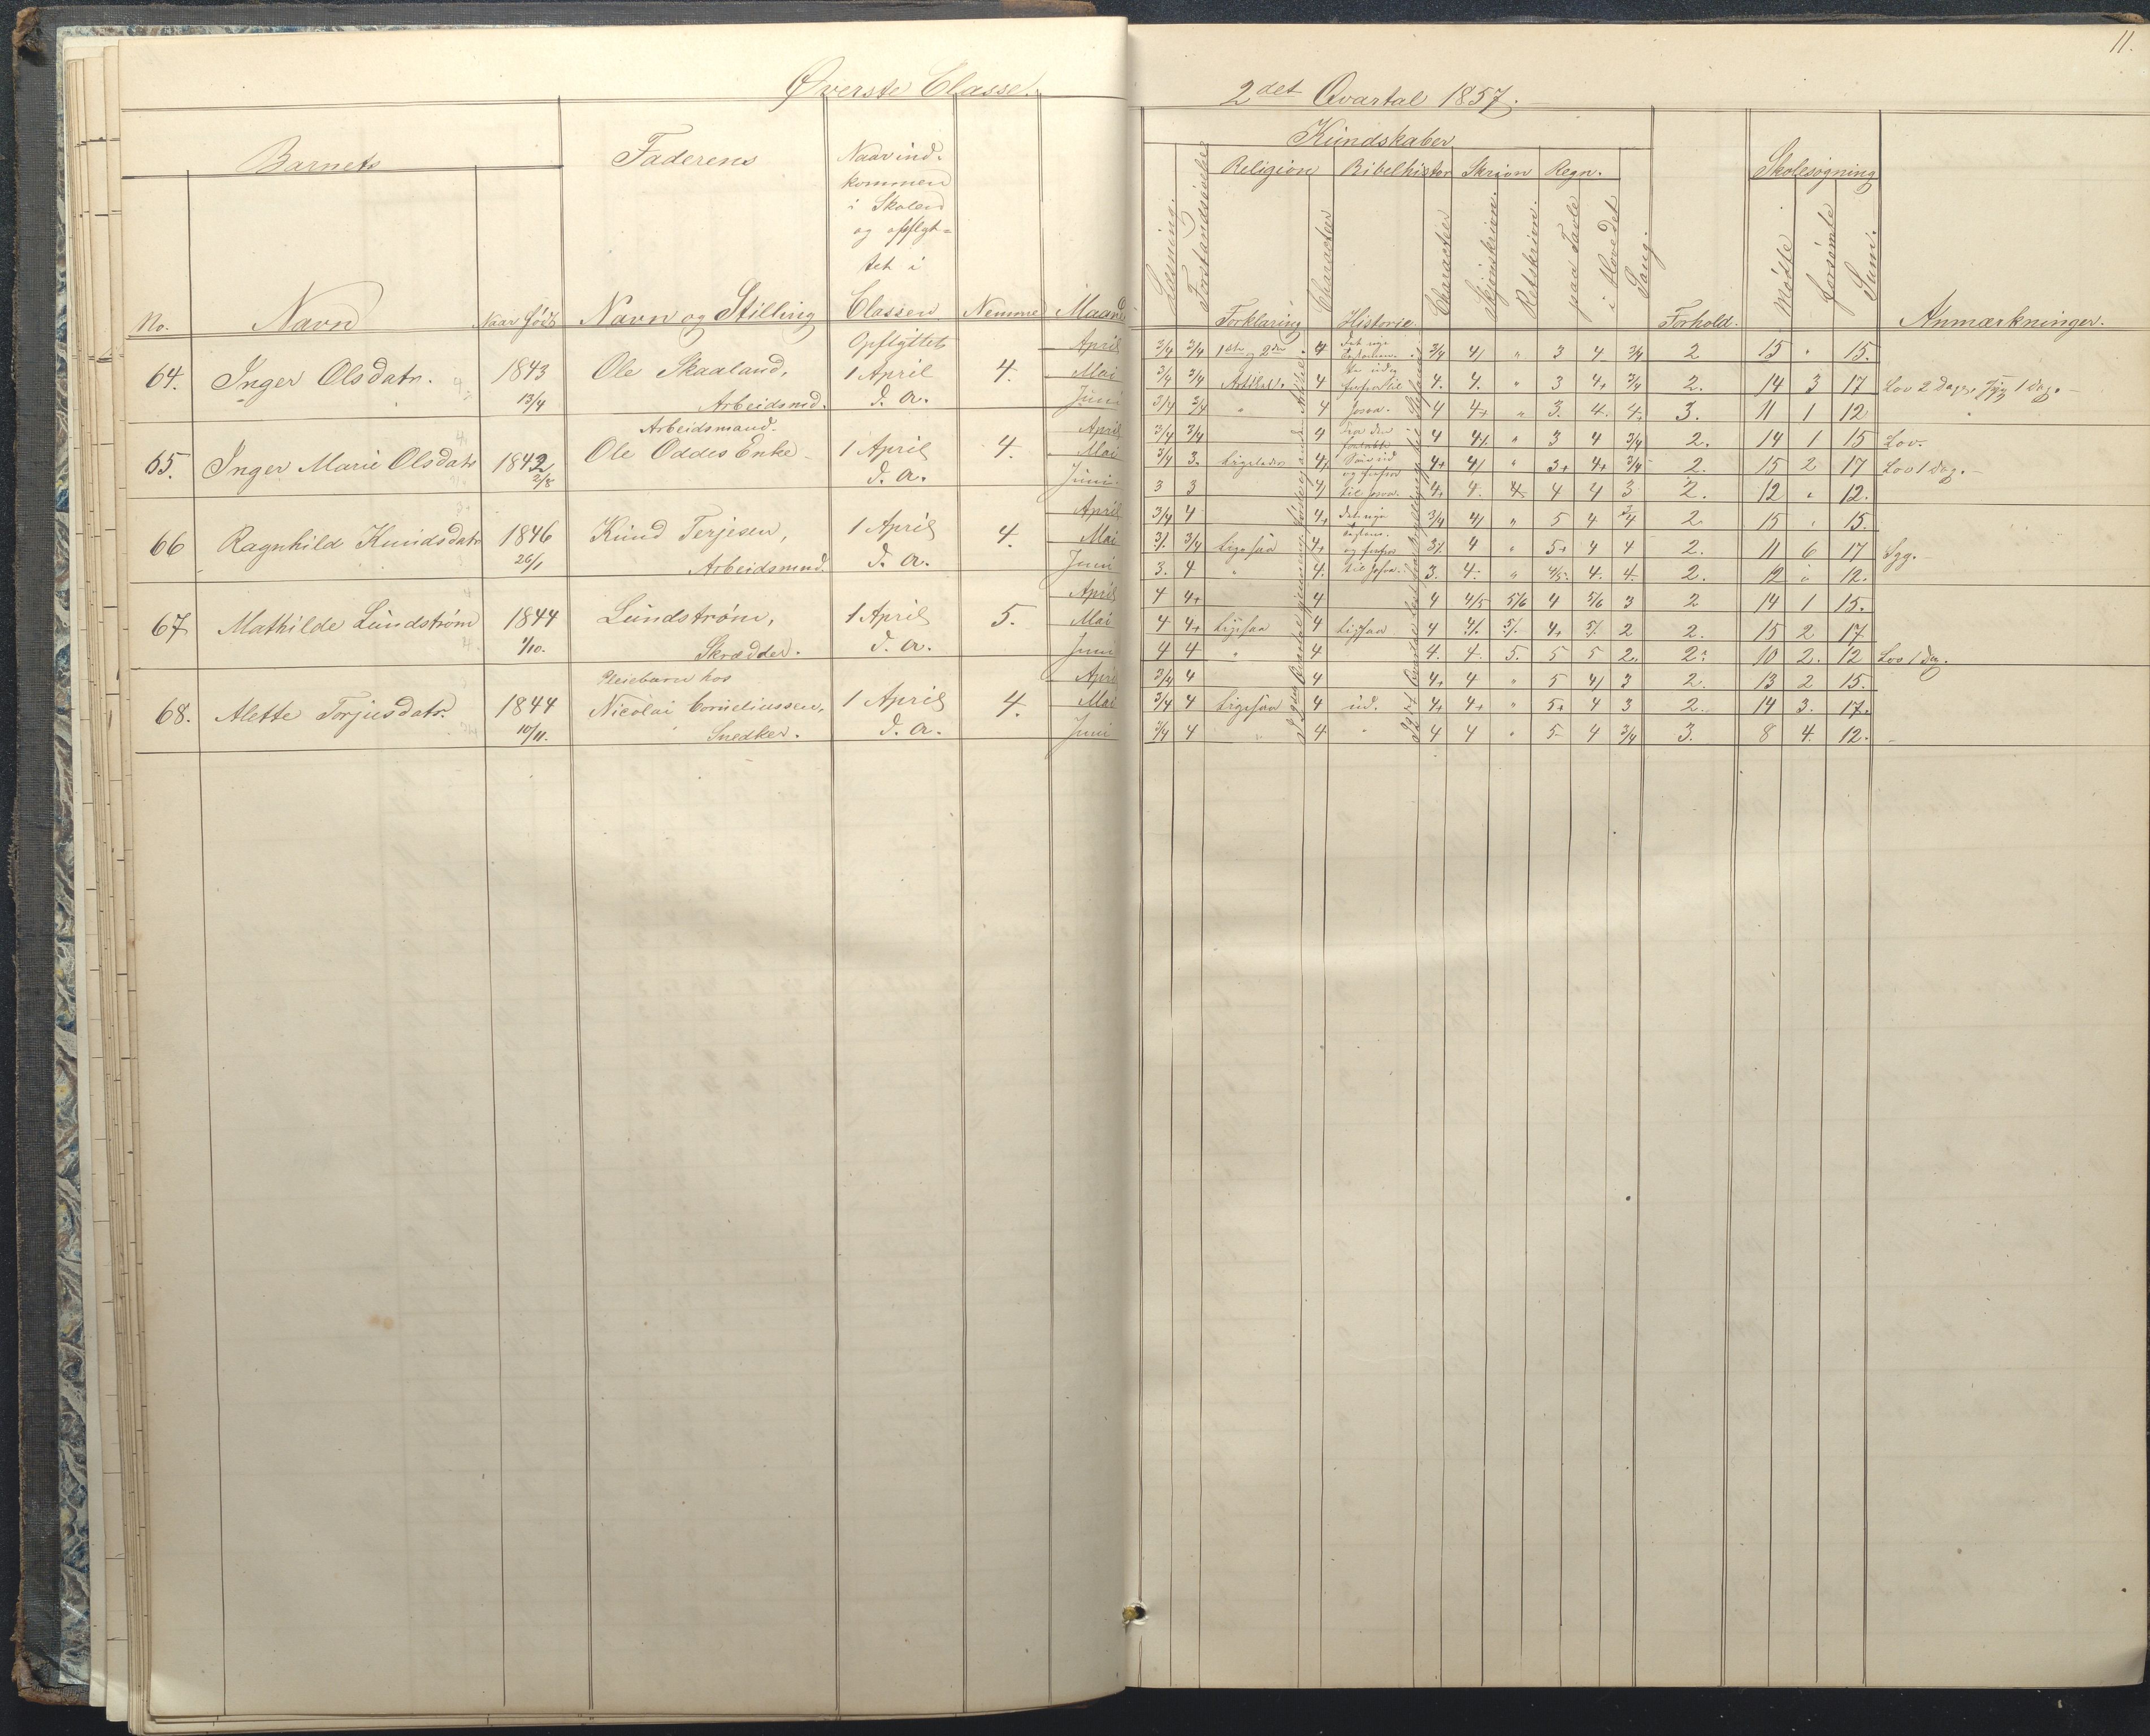 11.
Øverste Classe.
2det Qvartal 1857.
Barnets
Faderens
Naar ind-
kommen
i Skolen
og opflyt-
tet i
Classen.
No.
Navn
Naar født
Navn og Stilling
Nemme
Maaned
Kundskaber
Religion Bibelhistor Skrivn Regn.
Læsning.
Forstandsøvelser
Forklaring
Characteer
Historie.
Characteer
Skjønskrivn.
Retskrivn.
paa Tavle
i Hovedet
Sang.
Forhold.
Skolesøgning
Mødte
forsømte
Sum.
Anmærkninger.
Opflyttet
64. Inger Olsdatr. 1843 Ole Skaaland, 1 April 4.
13/4 Arbeidsmd. d. A.
April 3/4 3/4 1ste og 2den 4 3/4 4/ " 3 4 3/4 2 15 " 15.
Mai 3/4 3/4 Artikel. 4 4. 4. " 3 4+ 3/4 2. 14 3 17 Lov 2 Dage, syg 1 Dag.
Juni 3/4 3/4 " 4 4 4+ " 3. 4. 4+ 3. 11 1 12
Arbeidsmand.
65. Inger Marie Olsdatr 1842 Ole Oddes Enke 1 April 4.
2/8 d. A.
April 3/4 3/4 4 4 4/ " 3 4 3/4 2. 14 1 15 Lov.
Mai 3/4 3. Ligeledes 4/ 4+ 4/ " 3+ 4+ 3/4 2. 15 2 17 Lov 1 Dag.
Juni 3 3 4/ til Josva. 4+ 4. 4. 4 4 3 2. 12 " 12.
66 Ragnhild Knudsdatr 1846 Knud Terjesen, 1 April 4.
26/1 Arbeidsmnd. d. A.
April 3/4 4 4+ 3/4 4/ " 5 4 3/4 2 15 " 15.
Mai 3/. 3/4 Ligesaa 4+ 3/. 4 " 5+ 4 4 2. 11 6 17 Syg.
Juni 3. 4 " 4. til Josva. 3. 4. " 4/5. 4. 4. 2. 12 " 12.
67 Mathilde Lundstrøm 1844 Lundstrøm, 1 April 5.
1/10. Skrædder. d. A.
April 4 4+ 4 4 4/5 5/6 4 5/6 3 2 14 1 15.
Mai 4 4+ Ligesaa 4 Ligesaa 4 4/. 5/. 4+ 5/. 2 2. 15 2 17
Juni 4 4 " 4 4. 4. 5. 5 5 2. 2. 10 2. 12 Lov 1 Dag.
Pleiebarn hos
68. Alette Torjusdatr. 1844 Nicolai Corneliussen, 1 April 4.
10/11. Snedker. d. A.
April 3/4 4 4 4+ 4 " 5 4/ 3 2. 13 2 15.
Mai 3/4 4 Ligesaa 4 ud. 4+ 4+ " 5+ 4 3 2. 14 3. 17.
Juni 3/4 4 " 4 " 4 4 " 5 4 3/4 3. 8 4. 12.